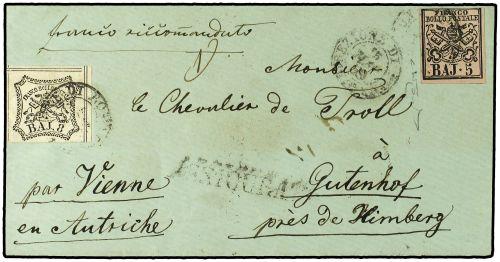 FRANCO
BOLLO POSTALE
BAJ. 5
franco riccomandato
Monsieur
le Chevalier de Troll
BAJ. 8
à
par Vienne
Gutenhof
en Autriche
près de Himberg